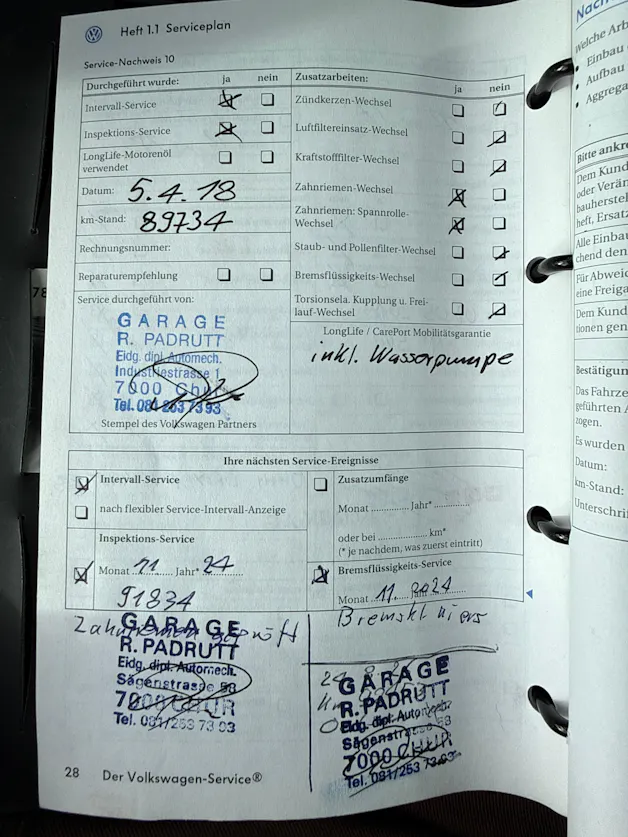 Heft 1.1 Serviceplan
Service-Nachweis 10
Durchgeführt wurde: ja nein
Intervall-Service
Inspektions-Service
LongLife-Motorenöl
verwendet
Datum: 5.4.18
km-Stand: 89734
Rechnungsnummer:
Reparaturempfehlung
Service durchgeführt von:
GARAGE
R. PADRUTT
Eidg. dipl. Automech.
Industriestrasse 1
7000 Chur
Tel. 081 253 73 93
Stempel des Volkswagen Partners
Zusatzarbeiten: ja nein
Zündkerzen-Wechsel
Luftfiltereinsatz-Wechsel
Kraftstofffilter-Wechsel
Zahnriemen-Wechsel
Zahnriemen: Spannrolle-
Wechsel
Staub- und Pollenfilter-Wechsel
Bremsflüssigkeits-Wechsel
Torsionsela. Kupplung u. Frei-
lauf-Wechsel
LongLife / CarePort Mobilitätsgarantie
inkl. Wasserpumpe
Ihre nächsten Service-Ereignisse
Intervall-Service
nach flexibler Service-Intervall-Anzeige
Inspektions-Service
Monat 11 Jahr* 24
91834
Zusatzumfänge
Monat Jahr*
oder bei km*
(* je nachdem, was zuerst eintritt)
Bremsflüssigkeits-Service
Monat 11.
Zahnriemen geprüft
GARAGE
R. PADRUTT
Eidg. dipl. Automech.
Sägenstrasse 58
7000 CHUR
Tel. 081/253 73 93
GARAGE
R. PADRUTT
Eidg. dipl. Automech.
Sägenstrasse 58
7000 CHUR
Tel. 081/253 73 93
28 Der Volkswagen-Service®
Welche Arb
• Einbau
• Aufbau
• Aggrega
Bitte ankre
Dem Kund
oder Verän
bauherstel
heft, Ersatz
Alle Einbau
chend den
Für Abweic
eine Freiga
Dem Kund
tionen gen
Bestätigun
Das Fahrze
geführten A
zogen.
Es wurden
Datum:
km-Stand:
Unterschrif